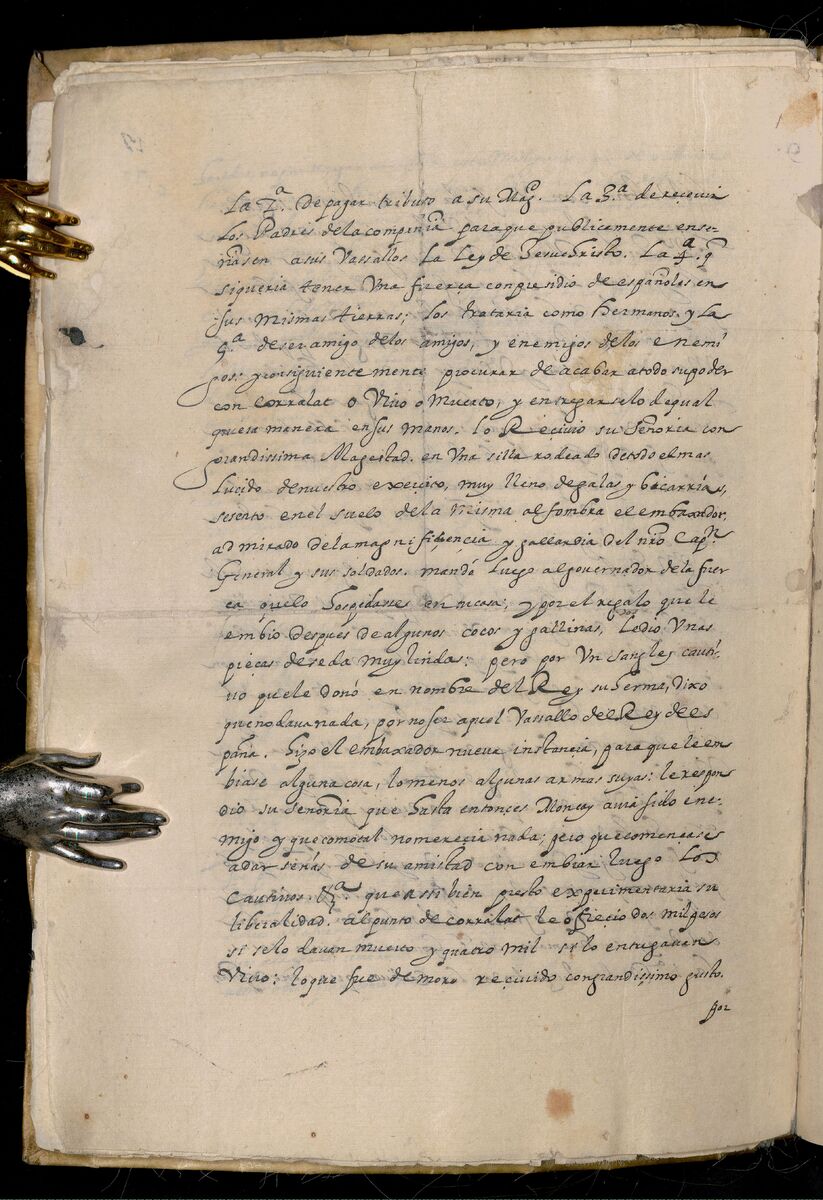 La 2.ª De pagar tributo a su Mag.d La 3.ª de reçeuir
Los Padres de la compañia para que publicamente ense-
ñasen a sus Vassallos La Ley de Jesuchristo. La 4.ª q
si queria tener Una fuerça con presidio de españoles en
sus mismas tierras; los trataria como Hermanos. y La
5.ª de ser amigo de los amigos, y enemigos de los enemi
gos: y consiguientemente procurar de acabar a todo su poder
con Corralat o Vivo o Muerto, y entregarselo de qual
quiera manera en sus manos. lo Reçivio su Señoria con
grandissima Magestad. en Una silla rodeado de todo el mas
Lucido de nuestro exerçito, muy lleno de galas y biçarrias,
sesento en el suelo de la misma alfombra el embaxador,
admirado de la magnifiçençia y gallardia del nro Capn
General y sus soldados. mandó luego al governador de la fuer
ça que lo Hospedasse en su casa; y por el regalo que le
embio despues de algunos cocos y gallinas, Le dio Unas
pieças de seda muy lindas: pero por Un sangley cauti-
vo que le donó en nombre del Rey su Herma, Dixo
que no dava nada, por no ser aquel Vassallo del Rey de es
paña. Hizo el embaxador nueva instancia, para que le em
biase alguna cosa, lo menos algunas armas suyas: le respon
dio su señoria que Hasta entonces Moncay avia sido ene-
migo y que como tal no mereçia nada; pero que començase
a dar señas de su amistad con embiar luego Los
Cautivos. &.ª que assi bien presto experimentaria su
liberalidad. al punto de Corralat le ofreçio dos mil pesos
si se lo davan muerto y quatro mil si lo entregavan
Vivo: lo que fue del moro reçivido con grandissimo gusto.
por